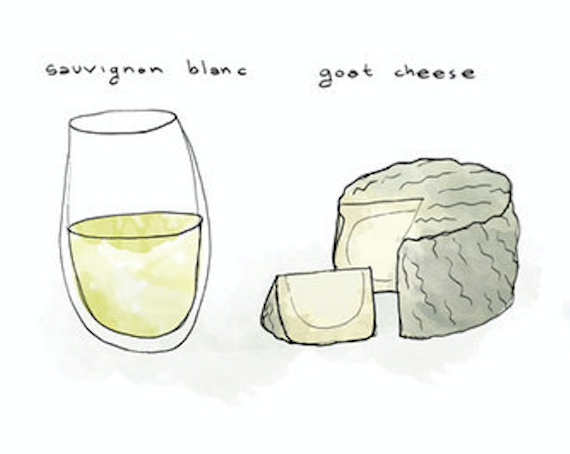 sauvignon blanc
goat cheese